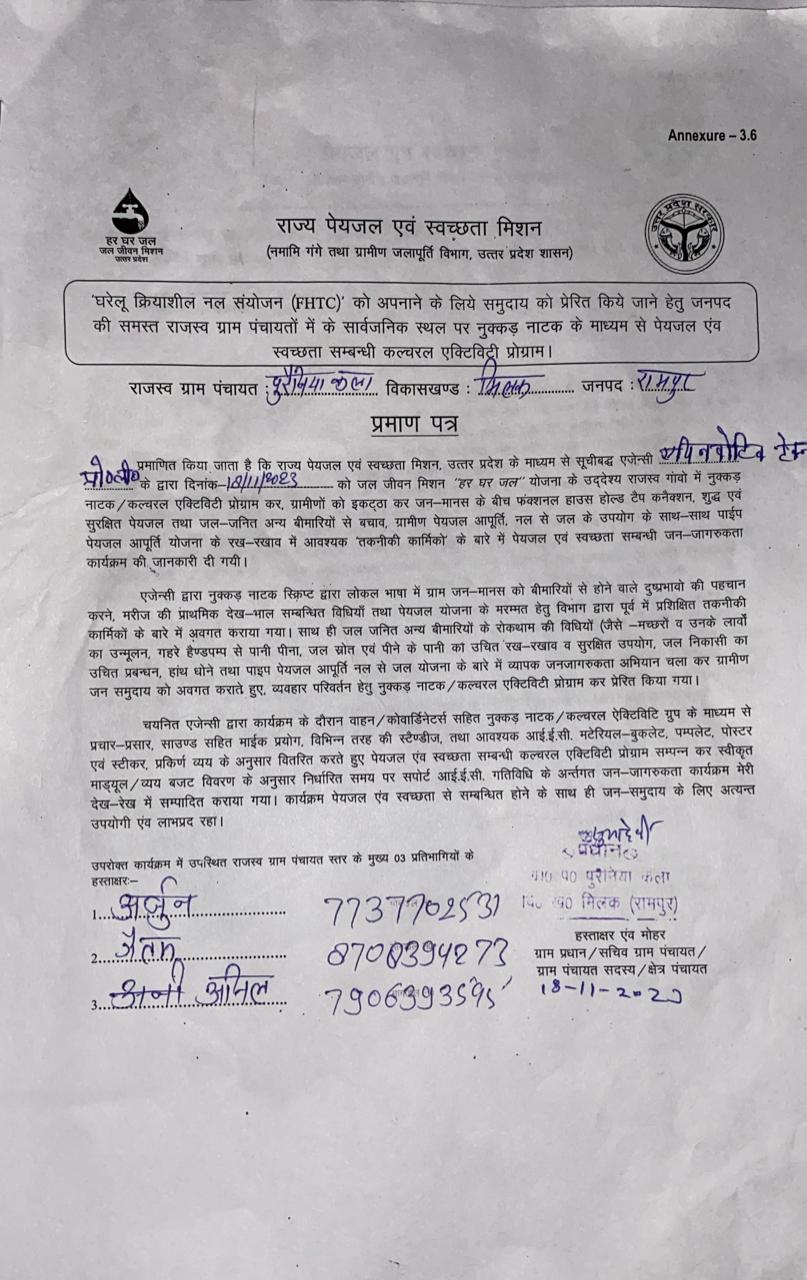 Annexure – 3.6
हर घर जल
जल जीवन मिशन
उत्तर प्रदेश
राज्य पेयजल एवं स्वच्छता मिशन
(नमामि गंगे तथा ग्रामीण जलापूर्ति विभाग, उत्तर प्रदेश शासन)
उत्तर प्रदेश सरकार
'घरेलू क्रियाशील नल संयोजन (FHTC)' को अपनाने के लिये समुदाय को प्रेरित किये जाने हेतु जनपद
की समस्त राजस्व ग्राम पंचायतों में के सार्वजनिक स्थल पर नुक्कड़ नाटक के माध्यम से पेयजल एंव
स्वच्छता सम्बन्धी कल्चरल एक्टिविटी प्रोग्राम।
राजस्व ग्राम पंचायत : पुरैनिया कला विकासखण्ड : मिलक जनपद : रामपुर
प्रमाण पत्र
प्रमाणित किया जाता है कि राज्य पेयजल एवं स्वच्छता मिशन, उत्तर प्रदेश के माध्यम से सूचीबद्ध एजेन्सी
प्रो०ली० के द्वारा दिनांक–18/11/2023 को जल जीवन मिशन "हर घर जल" योजना के उद्देश्य राजस्व गांवो में नुक्कड़
नाटक/कल्चरल एक्टिविटी प्रोग्राम कर, ग्रामीणों को इकट्ठा कर जन–मानस के बीच फंक्शनल हाउस होल्ड टैप कनैक्शन, शुद्ध एवं
सुरक्षित पेयजल तथा जल–जनित अन्य बीमारियों से बचाव, ग्रामीण पेयजल आपूर्ति, नल से जल के उपयोग के साथ–साथ पाईप
पेयजल आपूर्ति योजना के रख–रखाव में आवश्यक 'तकनीकी कार्मिको' के बारे में पेयजल एवं स्वच्छता सम्बन्धी जन–जागरुकता
कार्यक्रम की जानकारी दी गयी।
एजेन्सी द्वारा नुक्कड़ नाटक स्क्रिप्ट द्वारा लोकल भाषा में ग्राम जन–मानस को बीमारियों से होने वाले दुष्प्रभावो की पहचान
करने, मरीज की प्राथमिक देख–भाल सम्बन्धित विधियाँ तथा पेयजल योजना के मरम्मत हेतु विभाग द्वारा पूर्व में प्रशिक्षित तकनीकी
कार्मिकों के बारे में अवगत कराया गया। साथ ही जल जनित अन्य बीमारियों के रोकथाम की विधियों (जैसे –मच्छरों व उनके लार्वो
का उन्मूलन, गहरे हैण्डपम्प से पानी पीना, जल स्रोत एवं पीने के पानी का उचित रख–रखाव व सुरक्षित उपयोग, जल निकासी का
उचित प्रबन्धन, हांथ धोने तथा पाइप पेयजल आपूर्ति नल से जल योजना के बारे में व्यापक जनजागरुकता अभियान चला कर ग्रामीण
जन समुदाय को अवगत कराते हुए, व्यवहार परिवर्तन हेतु नुक्कड़ नाटक/कल्चरल एक्टिविटी प्रोग्राम कर प्रेरित किया गया।
चयनित एजेन्सी द्वारा कार्यक्रम के दौरान वाहन/कोवार्डिनेटर्स सहित नुक्कड़ नाटक/कल्चरल ऐक्टिविटि ग्रुप के माध्यम से
प्रचार–प्रसार, साउण्ड सहित माईक प्रयोग, विभिन्न तरह की स्टैण्डीज, तथा आवश्यक आई.ई.सी. मटेरियल–बुकलेट, पम्पलेट, पोस्टर
एवं स्टीकर, प्रकिर्ण व्यय के अनुसार वितरित करते हुए पेयजल एंव स्वच्छता सम्बन्धी कल्चरल एक्टिविटी प्रोग्राम सम्पन्न कर स्वीकृत
माड्यूल/व्यय बजट विवरण के अनुसार निर्धारित समय पर सपोर्ट आई.ई.सी. गतिविधि के अर्न्तगत जन–जागरुकता कार्यक्रम मेरी
देख–रेख में सम्पादित कराया गया। कार्यक्रम पेयजल एंव स्वच्छता से सम्बन्धित होने के साथ ही जन–समुदाय के लिए अत्यन्त
उपयोगी एंव लाभप्रद रहा।
प्रधान
ग्रा० पं० पुरैनिया कला
वि० ख० मिलक (रामपुर)
उपरोक्त कार्यक्रम में उपस्थित राजस्व ग्राम पंचायत स्तर के मुख्य 03 प्रतिभागियों के
हस्ताक्षरः–
1. अर्जुन 7737702531
2. 8708394273
3. अनिल
हस्ताक्षर एंव मोहर
ग्राम प्रधान/सचिव ग्राम पंचायत/
ग्राम पंचायत सदस्य/क्षेत्र पंचायत
18-11-2023